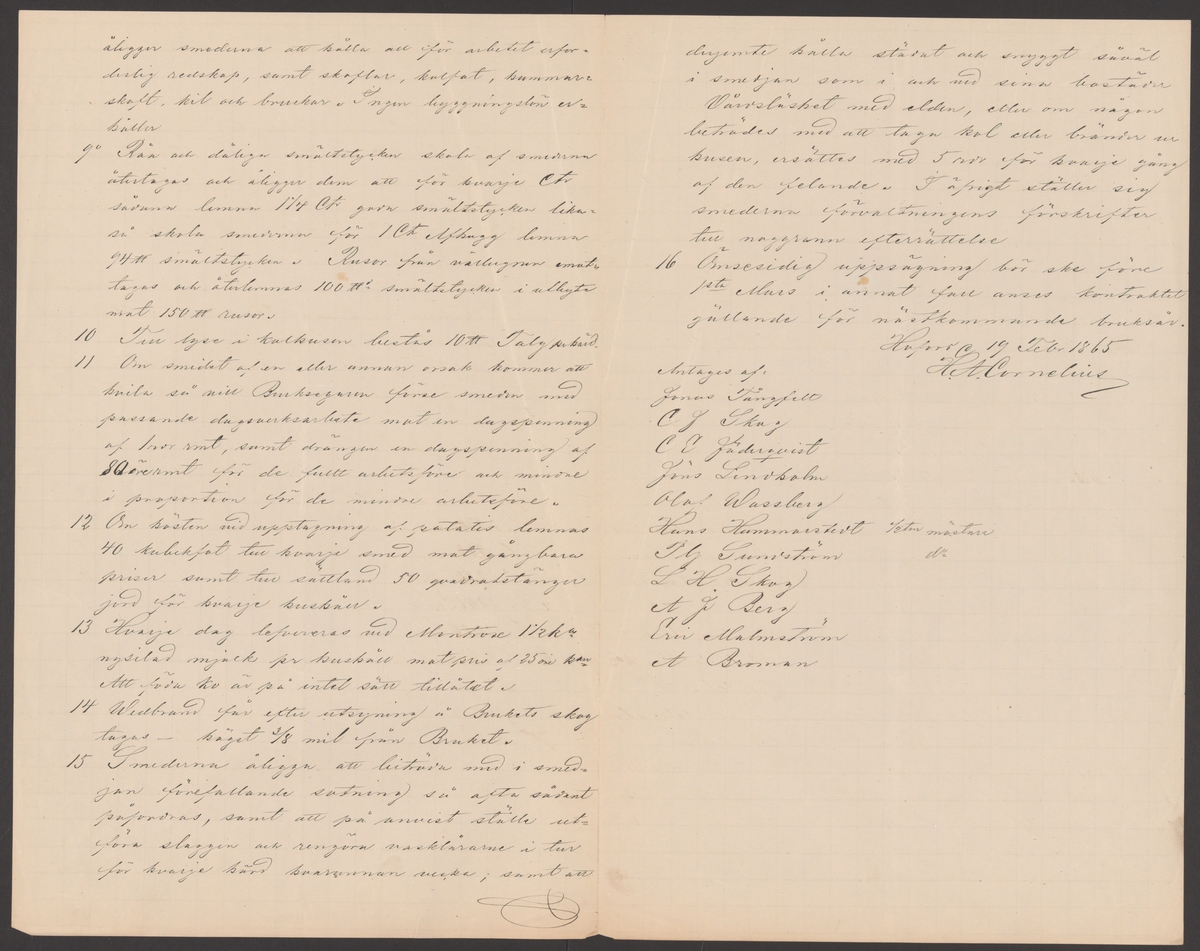 åligger smederna att hålla all för arbetet erfor-
derlig redskap, samt skaftar, kolfat, hammar-
skaft, kil och bruckar. Ingen byggningslön er-
håller
9o Råa och dåliga smältstycken skola af smederna
återtagas och åligger dem att för hvarje Ctr
sådana lemna 1 1/4 Ctr goda smältstycken lika-
så skola smederna för 1 Ctr Afhugg lemna
94 ℔ smältstycken. Rusor från vällugnen emot-
tagas och återlemnas 100 ℔ smältstycken i utbyte
mot 150 ℔ rusor.
10 Till lyse i kolhusen bestås 10 ℔ Talg pr härd.
11 Om smidet af en eller annan orsak kommer att
hvila så vill Bruksegaren förse smeden med
passande dagsverksarbete mot en dagspenning
af 1 rdr rmt, samt drängen en dagspenning af
80 öre rmt för de fullt arbetsföre och mindre
i proportion för de mindre arbetsföre.
12 Om hösten vid upptagning af potatis lemnas
40 kubikfot till hvarje smed mot gångbara
priser samt till sättland 50 qvadratstänger
jord för hvarje hushåll.
13 Hvarje dag lefvereras vid Montrose 1 1/2 kn
nysilad mjölk pr hushåll mot pris af 25 öre kan
Att föda ko är på intet sätt tillåtet.
14 Wedbrand får efter utsyning å Brukets skog
tagas — högst 3/8 mil från Bruket.
15 Smederna åligga att biträda med i smed-
jan förefallande sotning så ofta sådant
påfordras, samt att på anvist ställe ut-
föra slaggen och rengöra vasklårarne i tur
för hvarje härd hvarannan vecka; samt att
derjemte hålla städat och snyggt såväl
i smedjan som i och vid sina bostäder
Vårdslöshet med elden, eller om någon
beträdes med att taga kol eller bränder ur
husen, ersättes med 5 rdr för hvarje gång
af den felande. I öfrigt ställer sig
smederna förvaltningens förskrifter
till noggrann efterrättelse
16 Ömsesidig uppsägning bör ske före
1sta Mars i annat fall anses kontraktet
gällande för nästkommande bruksår.
Hofors 19 Febr 1865
H. A. Cornelius
Antages af:
Jonas Tångfelt
C J Skog
C E Jäderqvist
Jöns Lindholm
Olof Wassberg
Hans Hammarstedt 1/2ten mästare
P Sundström do
L H Skog
A J Berg
Eric Malmström
A Broman